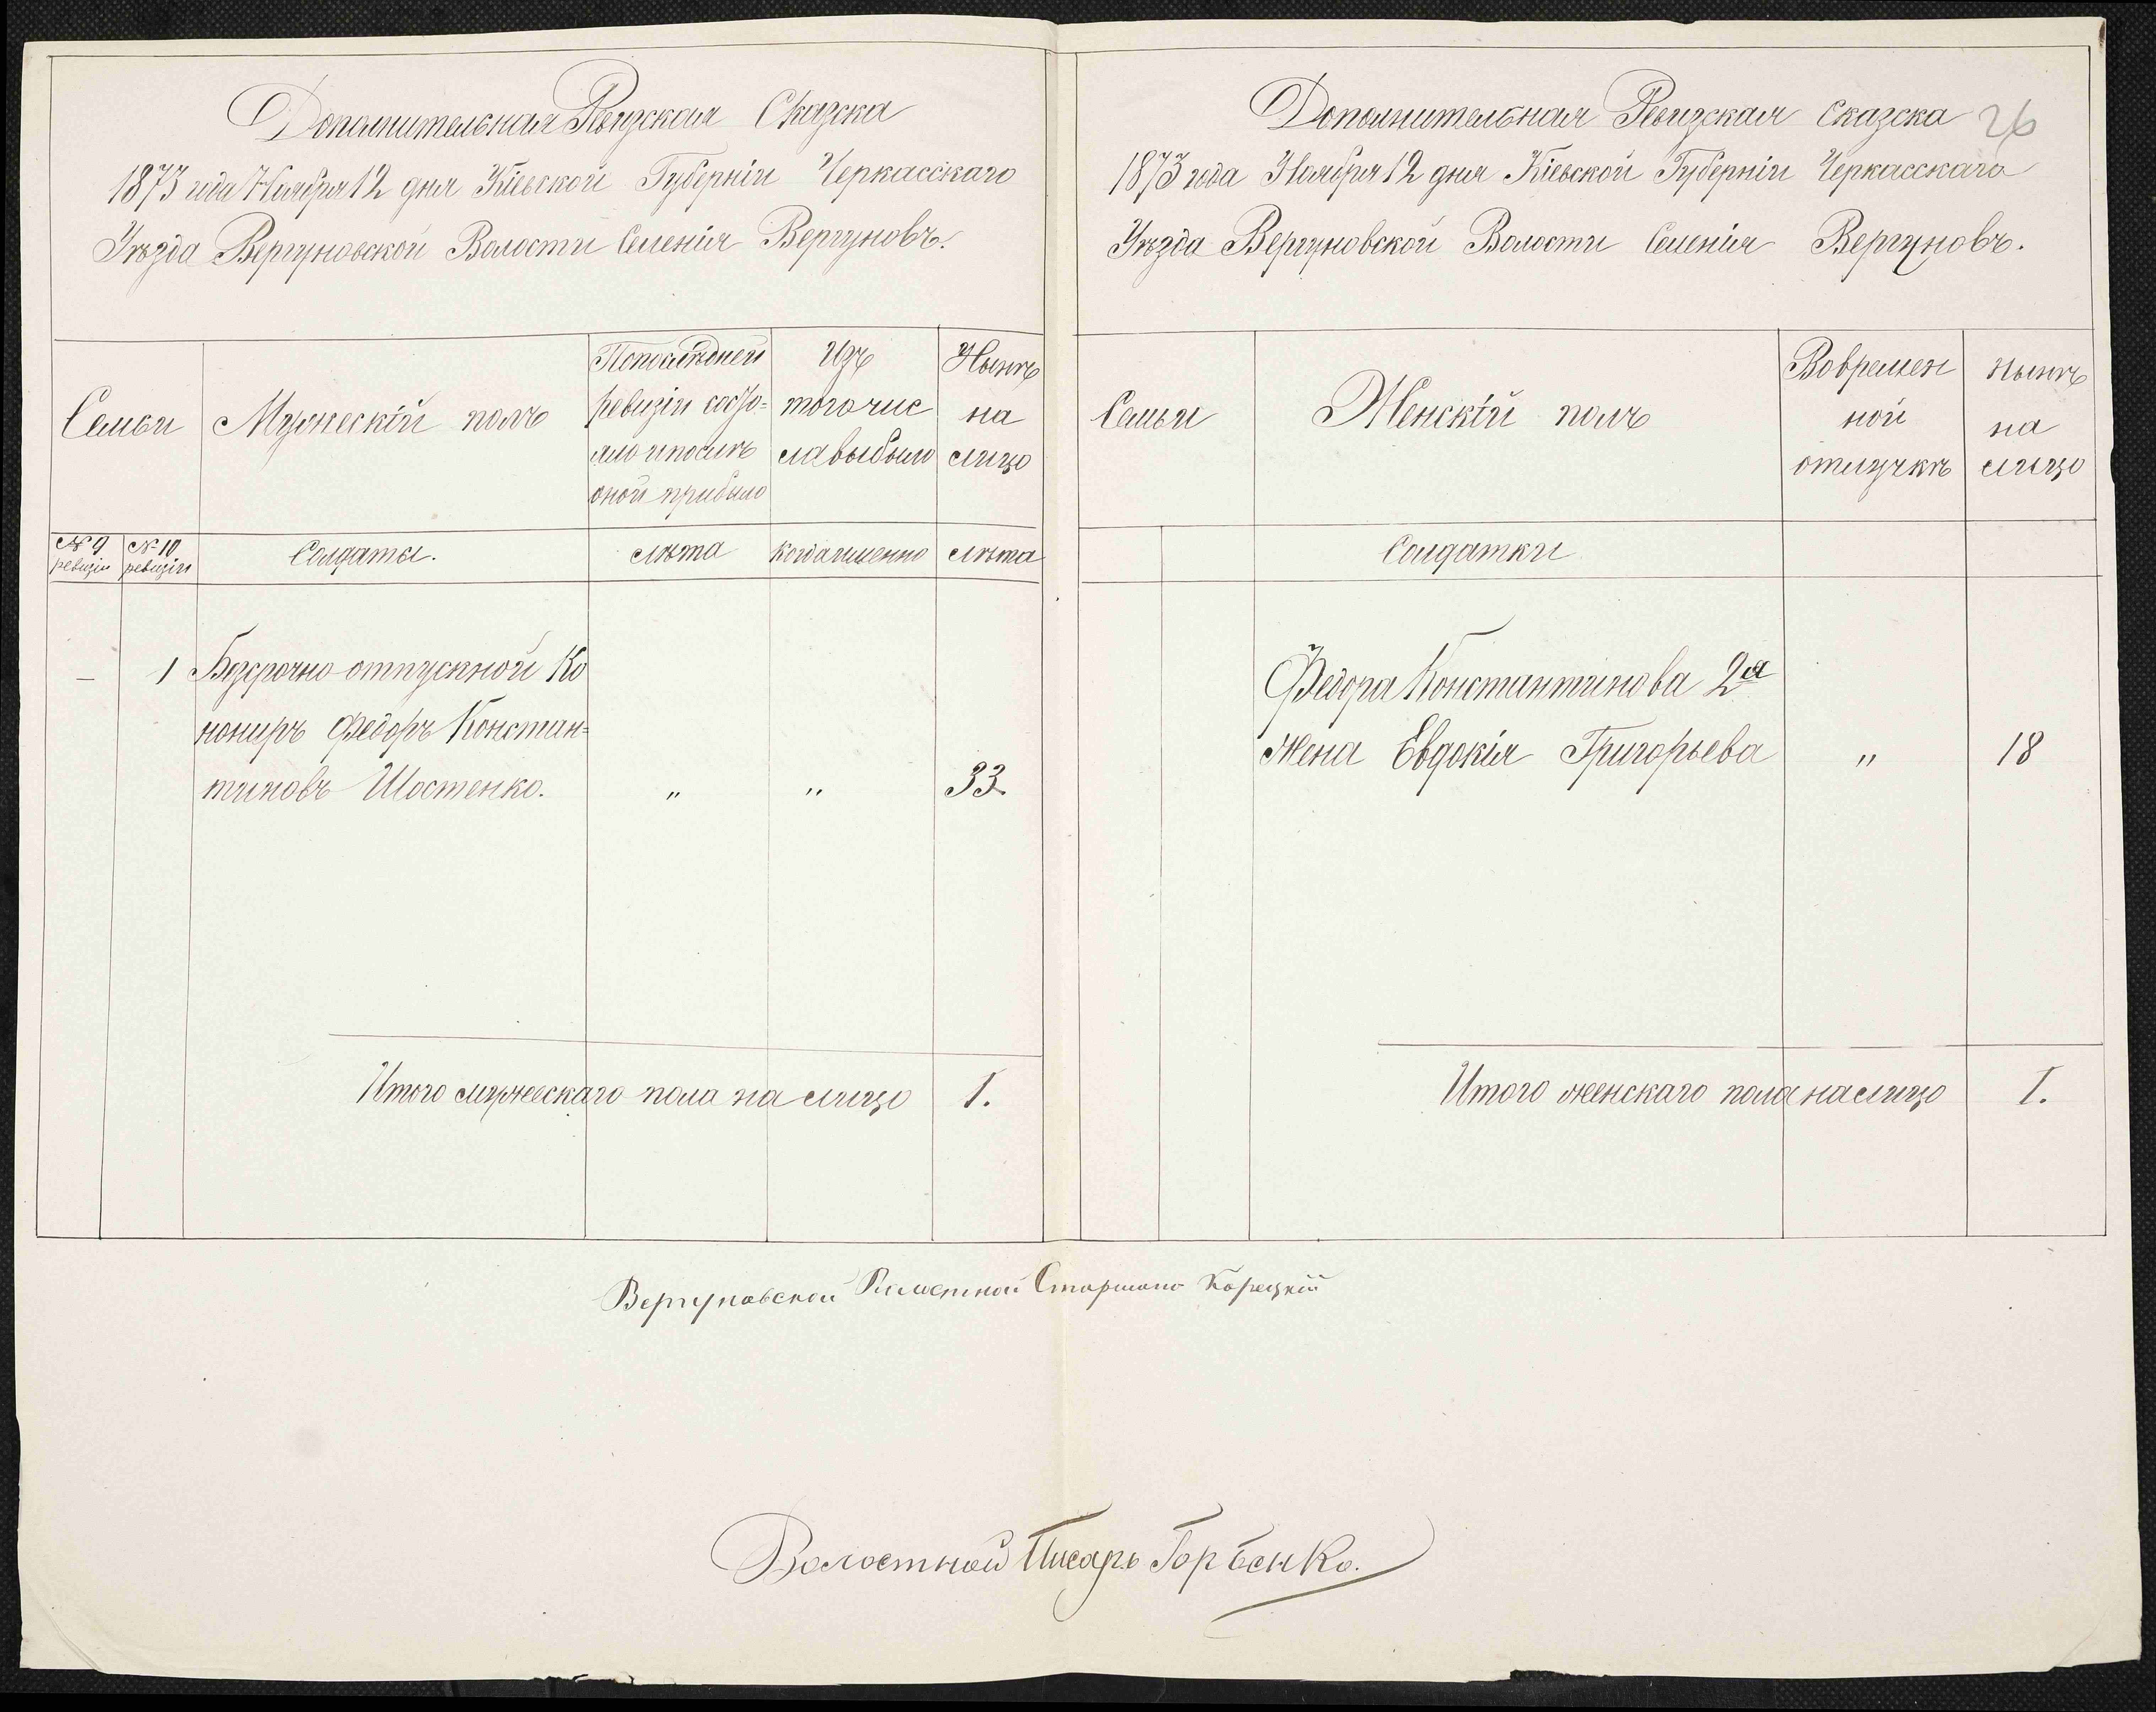 Дополнительная Ревизская Сказка
1873 года Ноября 12 дня Кіевской Губерніи Черкасскаго
Уѣзда Вергуновской Волости Селенія Вергуновъ.
Семьи
Мужескій полъ
Попослѣдней
ревизіи состо=
яло и послѣ
оной прибыло
Изъ
того чис
ла выбыло
Нынѣ
на
лицо
№ 9
ревизіи
№ 10
ревизіи
Солдаты.
лѣта
когда именно
лѣта
— 1 Безсрочно-отпускной Ко
нониръ Федоръ Констан=
тиновъ Шостенко. " " 33
Итого мужескаго пола на лицо 1.
Дополнительная Ревизская Сказска 26
1873 года Ноября 12 дня Кіевской Губерніи Черкасскаго
Уѣзда Вергуновской Волости Селенія Вергуновъ.
Семьи
Женскій полъ
Вовремен
ной
отлучкѣ
Нынѣ
на
лицо
Солдатки
Федора Константинова 2я
Жена Евдокія Григорьева " 18
Итого женскаго пола на лицо 1.
Вергуновской Волостной Старшина Корецкій
Волостной Писарь Горбенко.